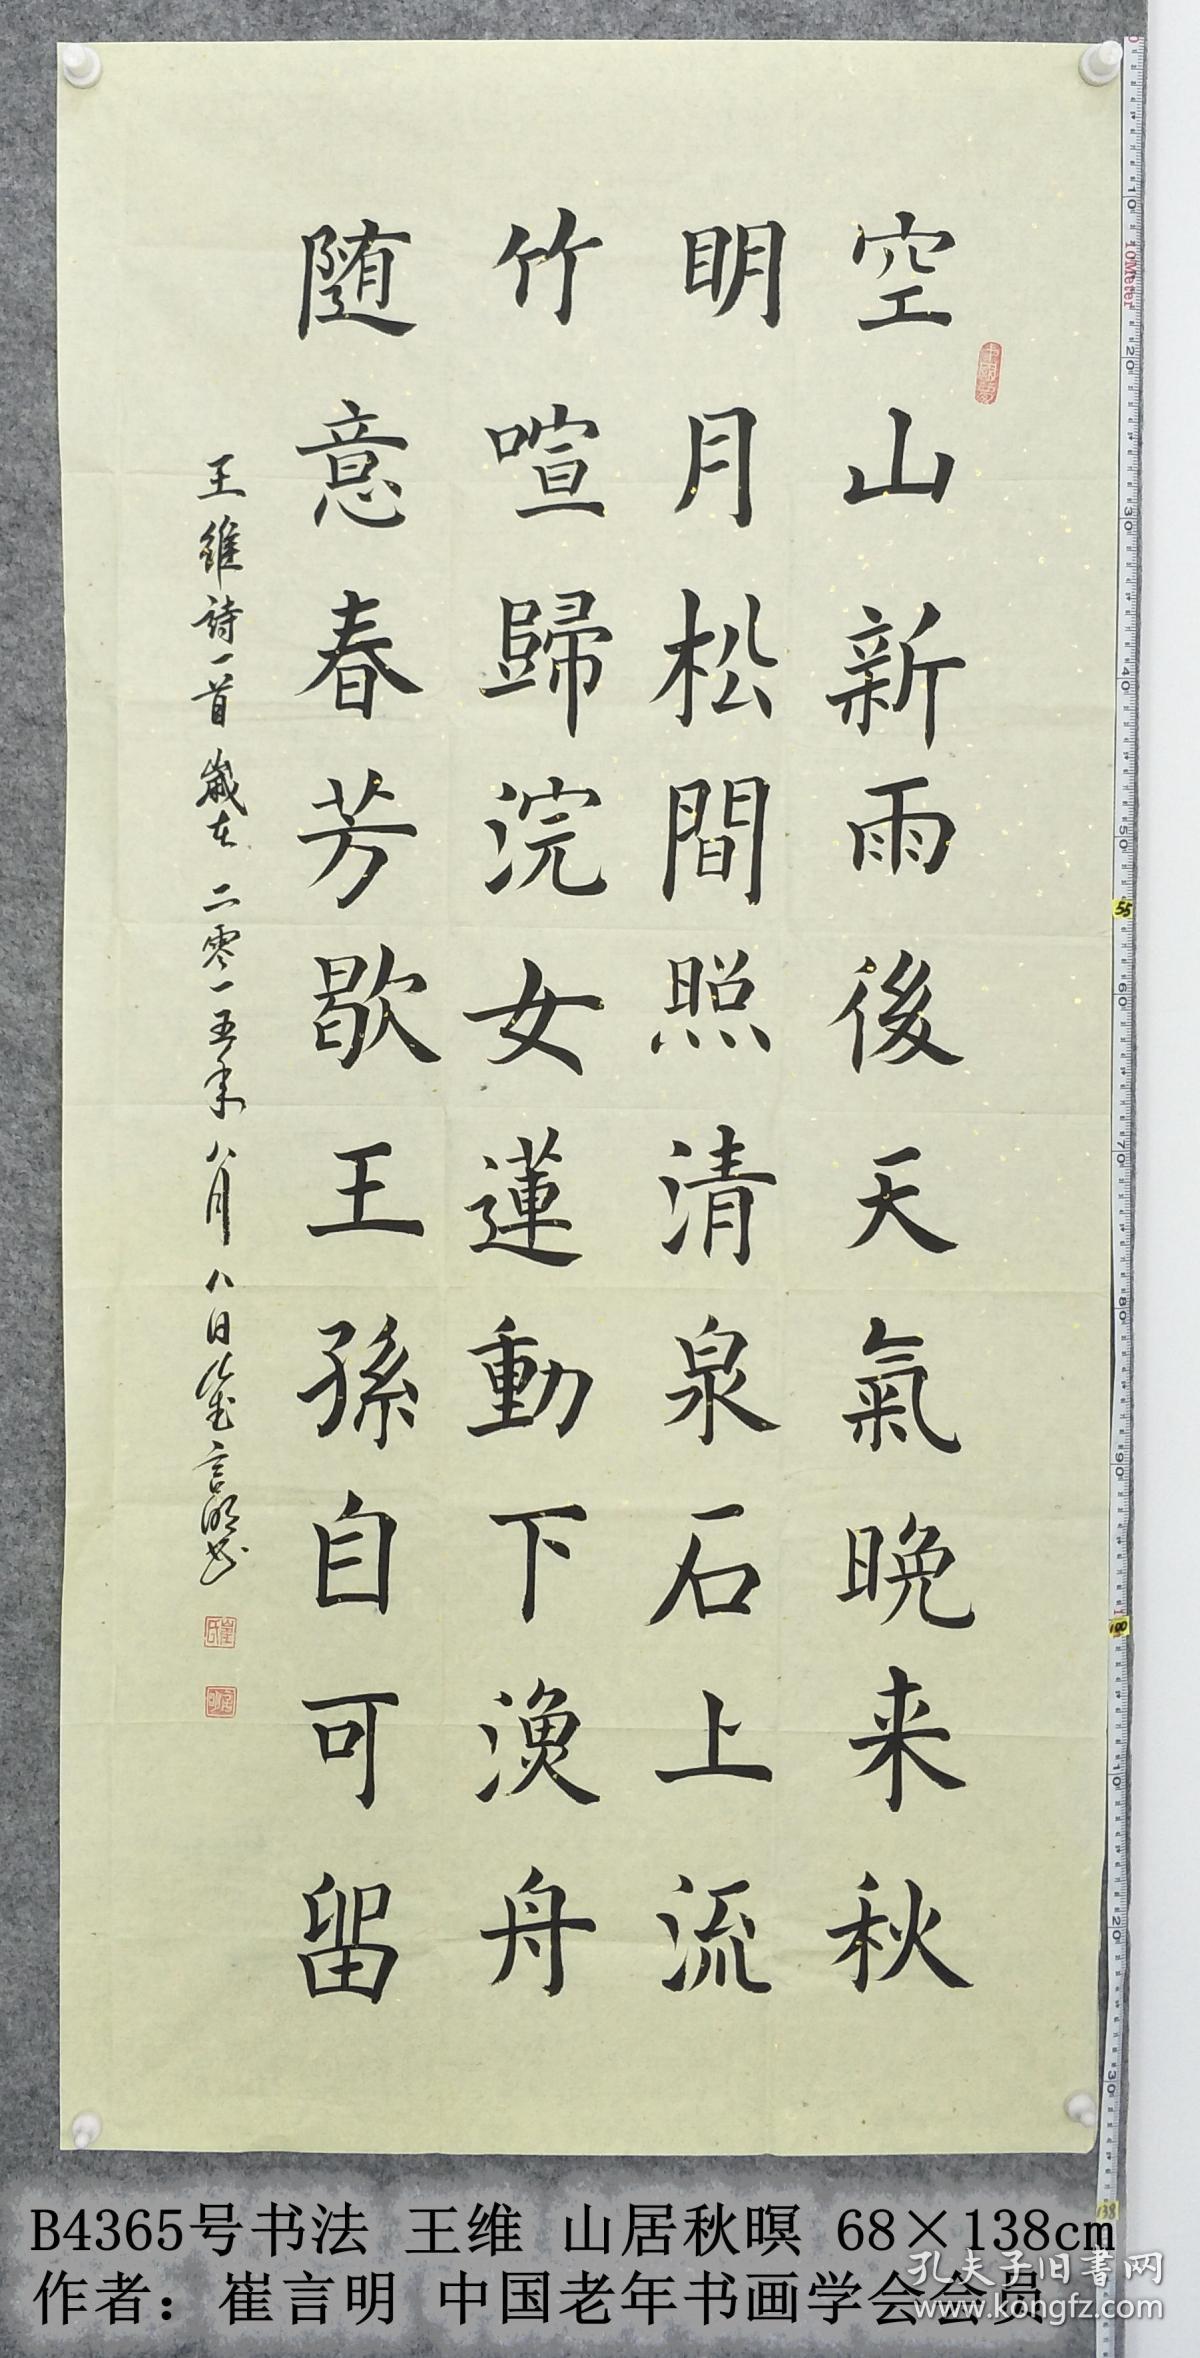 空山新雨後天氣晚来秋
明月松間照清泉石上流
竹喧歸浣女蓮動下漁舟
随意春芳歇王孫自可留
王維詩一首歲在二零一五年八月八日崔言明书
崔氏
言明
B4365号书法 王维 山居秋暝 68×138cm
作者：崔言明 中国老年书画学会会员
孔夫子旧书网
www.kongfz.com
10Meter
55
100
138